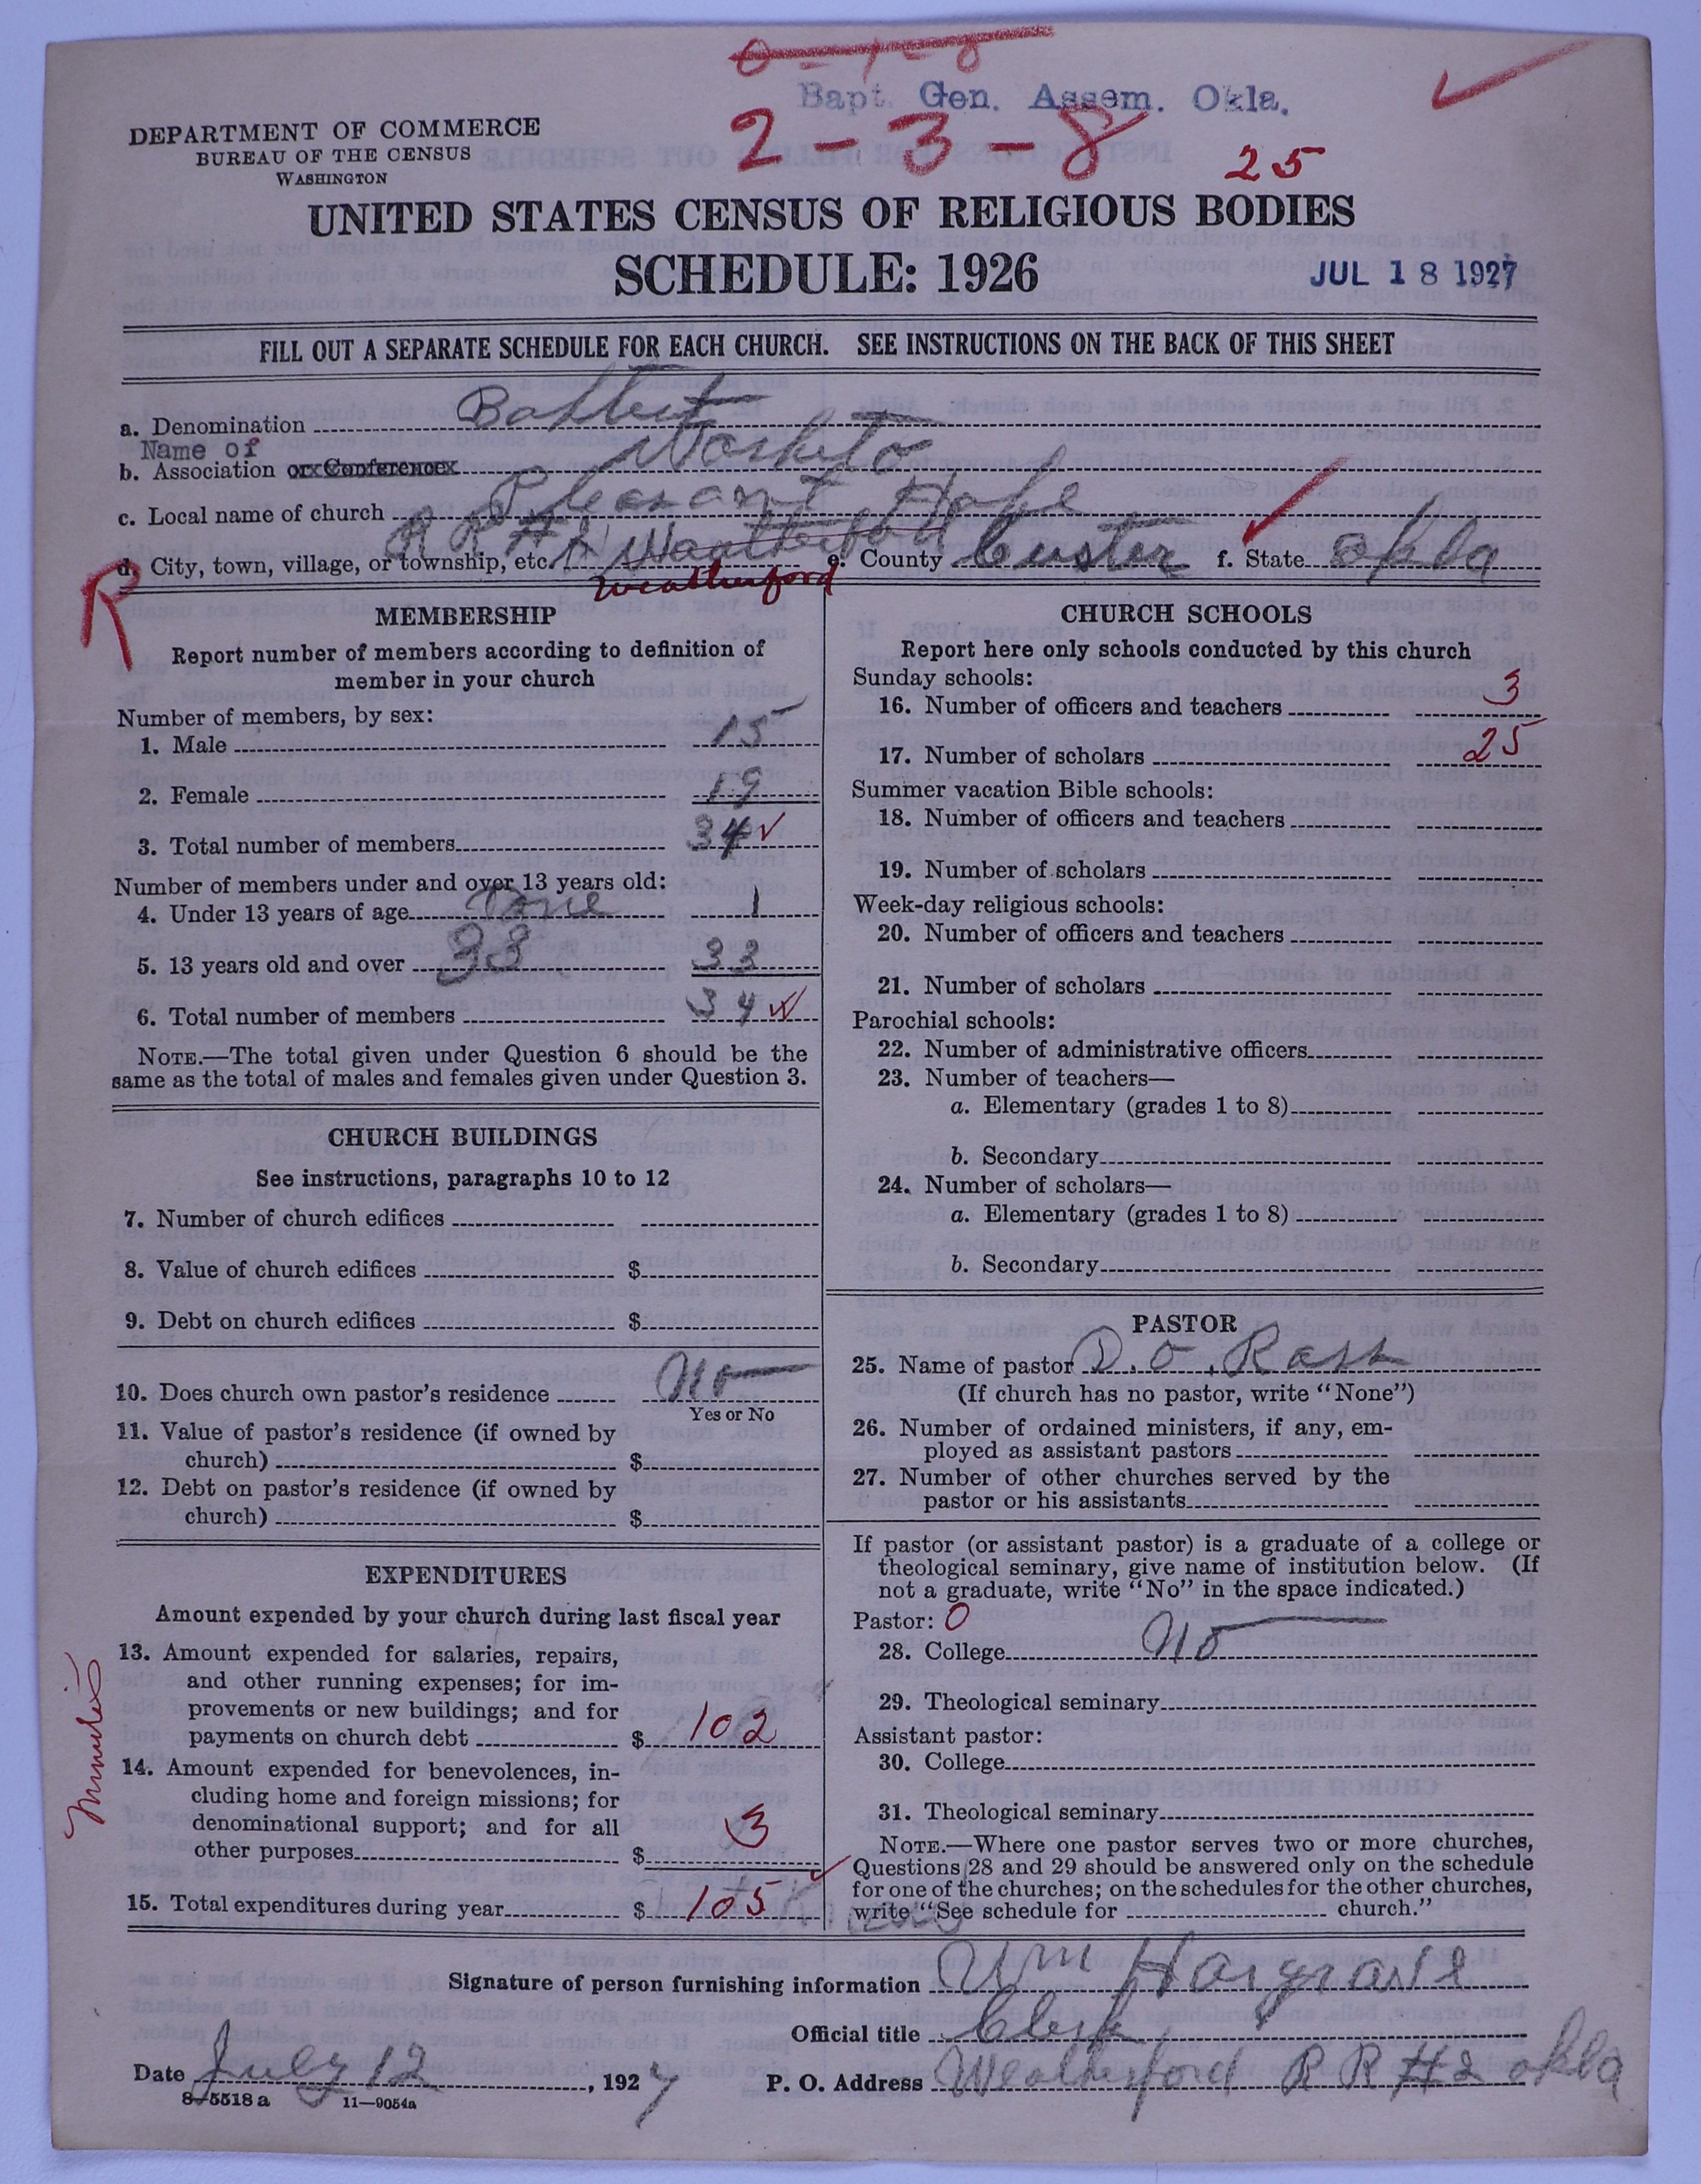 Bapt. Gen. Assem. Okla.
2 - 3 - 8
25
DEPARTMENT OF COMMERCE
BUREAU OF THE CENSUS
WASHINGTON
UNITED STATES CENSUS OF RELIGIOUS BODIES
SCHEDULE: 1926
JUL 18 1927
FILL OUT A SEPARATE SCHEDULE FOR EACH CHURCH. SEE INSTRUCTIONS ON THE BACK OF THIS SHEET
a. Denomination
Name of
b. Association or Conference
c. Local name of church Pleasant Hope
d. City, town, village, or township, etc. RR #2 Weatherford e. County Custer f. State Okla
R Weatherford
MEMBERSHIP
Report number of members according to definition of
member in your church
Number of members, by sex:
1. Male 15
2. Female 19
3. Total number of members 34
Number of members under and over 13 years old:
4. Under 13 years of age one 1
5. 13 years old and over 33 33
6. Total number of members 34
NOTE.—The total given under Question 6 should be the
same as the total of males and females given under Question 3.
CHURCH BUILDINGS
See instructions, paragraphs 10 to 12
7. Number of church edifices
8. Value of church edifices $
9. Debt on church edifices $
10. Does church own pastor's residence No
Yes or No
11. Value of pastor's residence (if owned by
church) $
12. Debt on pastor's residence (if owned by
church) $
EXPENDITURES
Amount expended by your church during last fiscal year
13. Amount expended for salaries, repairs,
and other running expenses; for im-
provements or new buildings; and for
payments on church debt $ 102
Minutes
14. Amount expended for benevolences, in-
cluding home and foreign missions; for
denominational support; and for all
other purposes $ 3
15. Total expenditures during year $ 105
CHURCH SCHOOLS
Report here only schools conducted by this church
Sunday schools:
16. Number of officers and teachers 3
17. Number of scholars 25
Summer vacation Bible schools:
18. Number of officers and teachers
19. Number of scholars
Week-day religious schools:
20. Number of officers and teachers
21. Number of scholars
Parochial schools:
22. Number of administrative officers
23. Number of teachers—
a. Elementary (grades 1 to 8)
b. Secondary
24. Number of scholars—
a. Elementary (grades 1 to 8)
b. Secondary
PASTOR
25. Name of pastor D. O. Rash
(If church has no pastor, write "None")
26. Number of ordained ministers, if any, em-
ployed as assistant pastors
27. Number of other churches served by the
pastor or his assistants
If pastor (or assistant pastor) is a graduate of a college or
theological seminary, give name of institution below. (If
not a graduate, write "No" in the space indicated.)
Pastor: 0
28. College No
29. Theological seminary
Assistant pastor:
30. College
31. Theological seminary
NOTE.—Where one pastor serves two or more churches,
Questions 28 and 29 should be answered only on the schedule
for one of the churches; on the schedules for the other churches,
write "See schedule for church."
Signature of person furnishing information Wm Hargrave
Official title Clerk
Date July 12, 1927 P. O. Address Weatherford RR #2 okla
8-5518 a 11—9054a